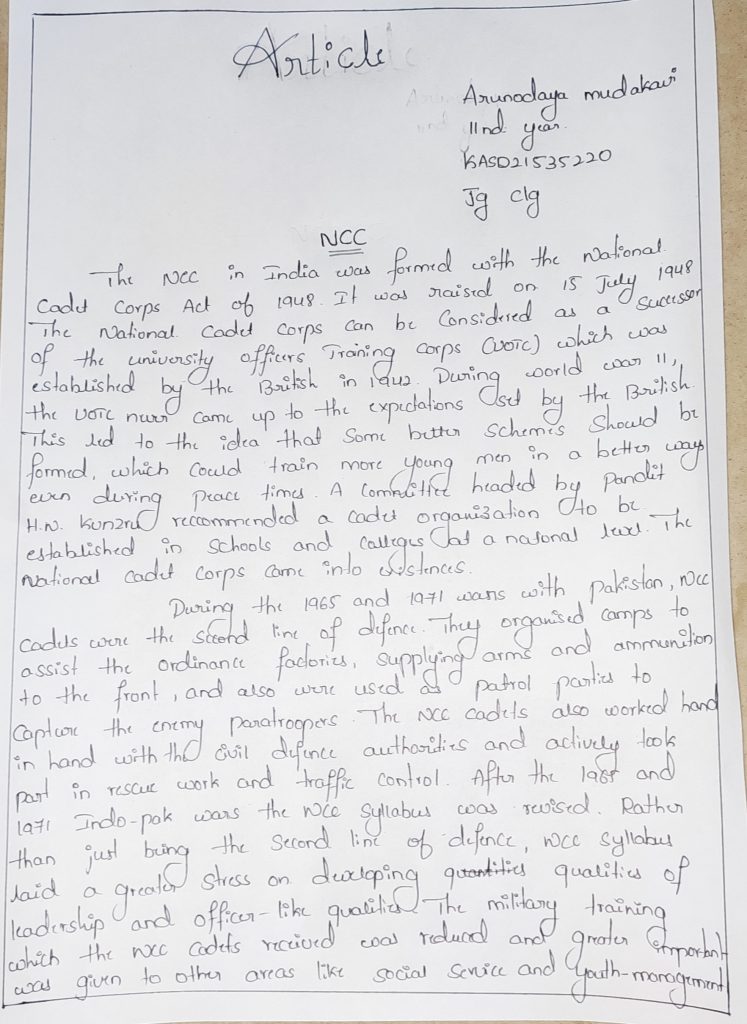 Article
Arunodaya mudakavi
IInd year.
KASD21535220
Jg clg
NCC
The NCC in India was formed with the National
Cadet Corps Act of 1948. It was raised on 15 July 1948
The National Cadet Corps can be Considered as a Successor
of the university officers Training corps (UOTC) which was
established by the British in 1942. During world war II,
the UOTC never came up to the expectations set by the British.
This led to the idea that Some better Schemes Should be
formed, which Could train more young men in a better way
even during peace times. A Committee headed by Pandit
H.N. Kunzru reccommended a cadet organization to be
established in Schools and colleges at a natonal level. The
National cadet Corps Came into existences.
During the 1965 and 1971 wars with pakistan, NCC
Cadets were the second line of defence. They organised camps to
assist the ordinance factories, supplying arms and ammunition
to the front, and also were used as patrol parties to
Capture the enemy paratroopers. The NCC cadets also worked hand
in hand with the civil defence authorities and actively took
part in rescue work and traffic control. After the 1965 and
1971 Indo-pak wars the NCC Syllabus was revised. Rather
than just being the Second line of defence, NCC Syllabus
laid a greater stress on developing quantities qualities of
leadership and officer-like qualities. The military training
which the NCC Cadets received was reduced and greater important
was given to other areas like social Service and youth-management